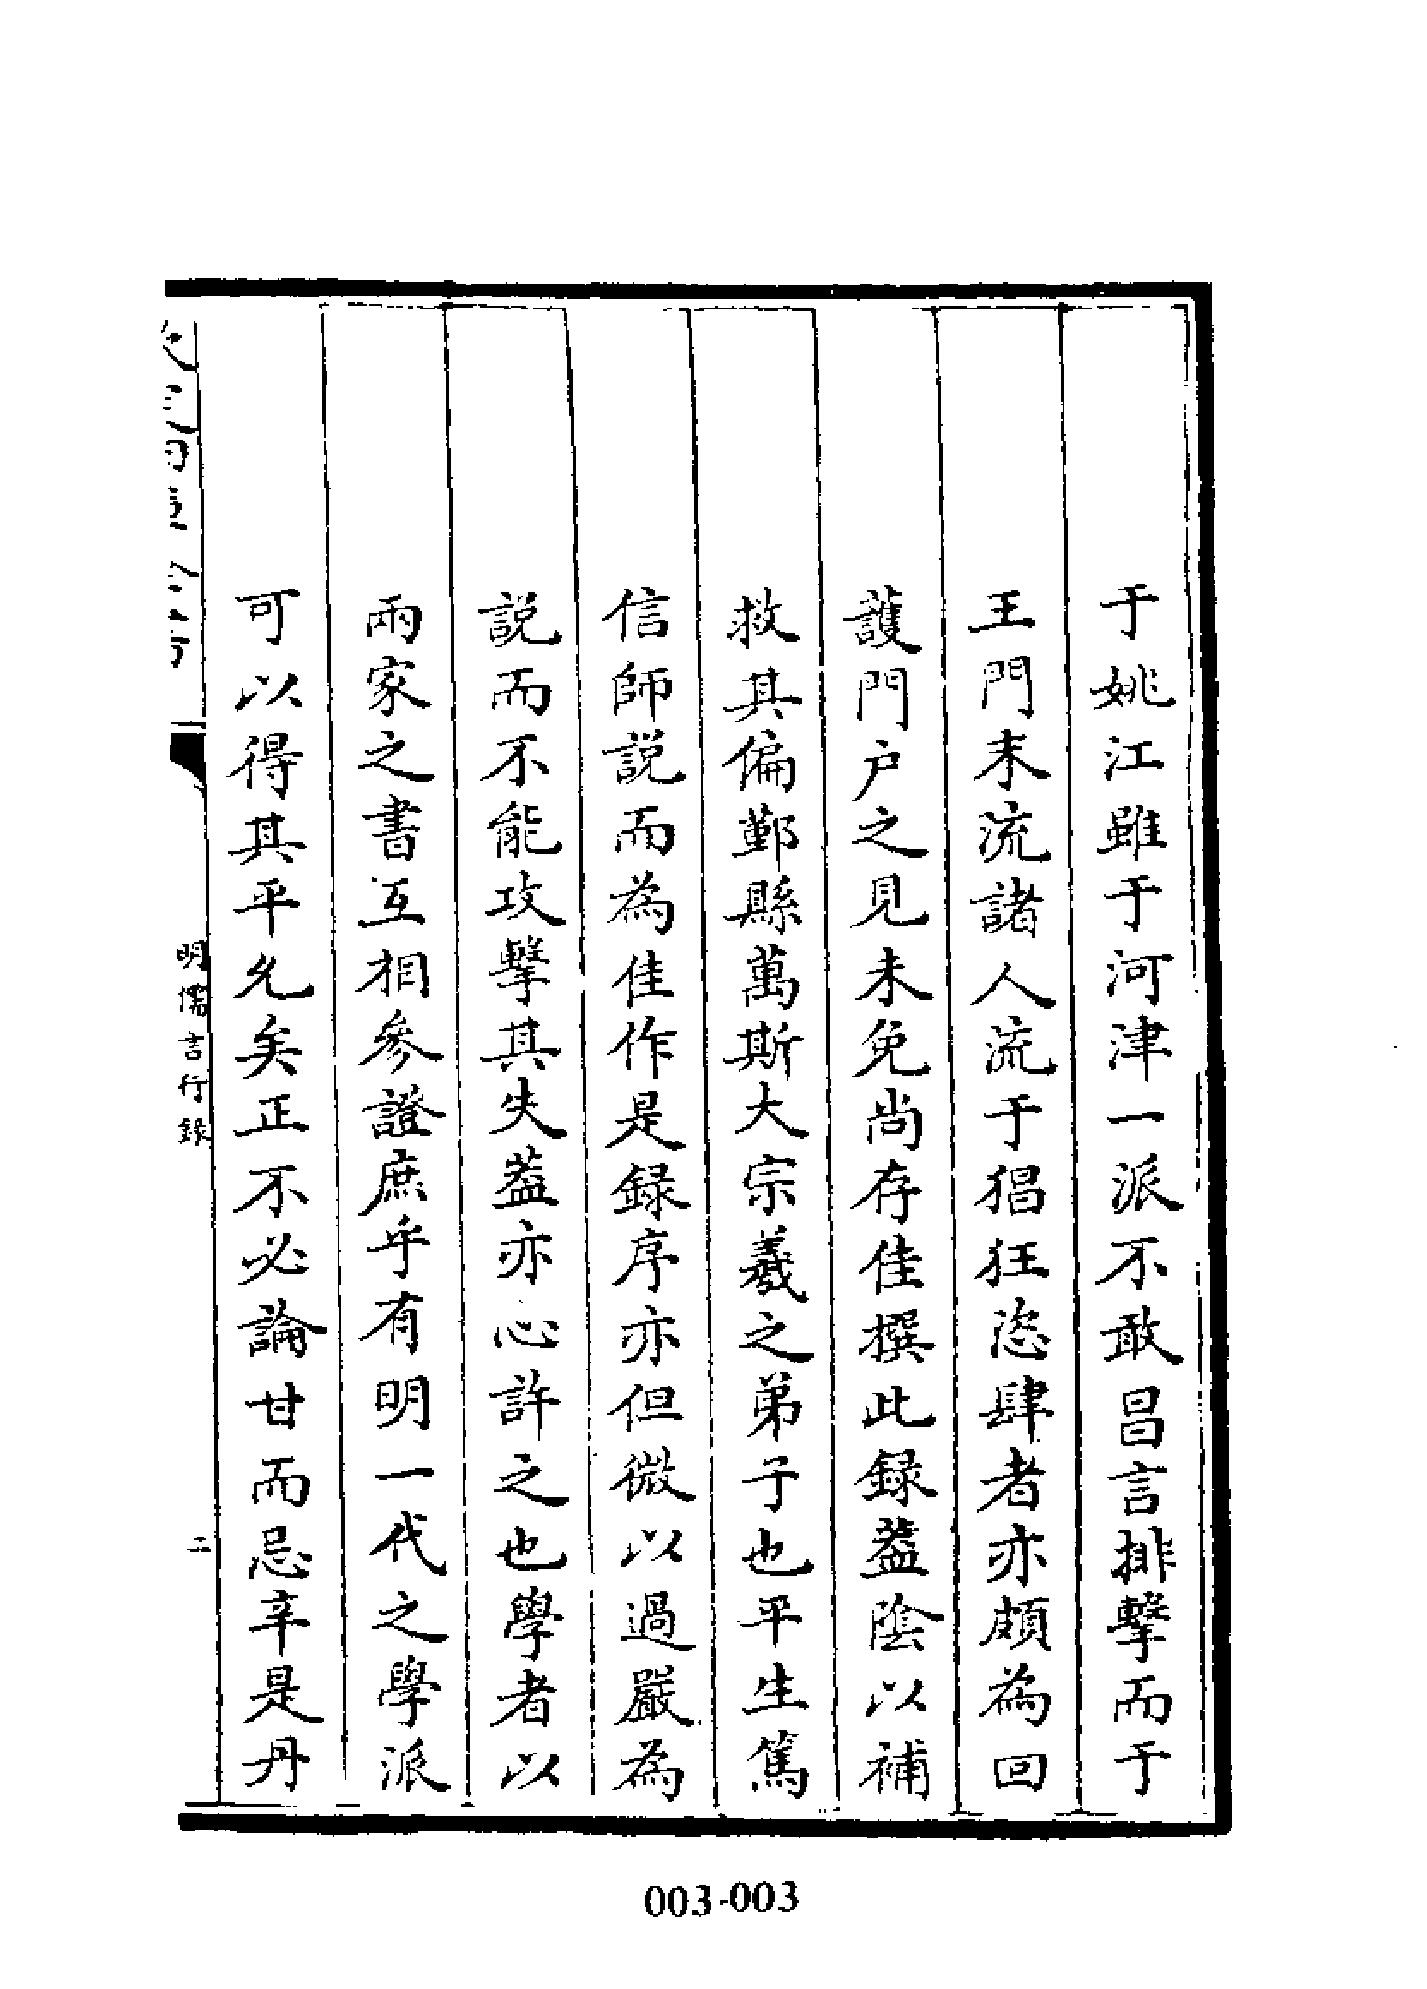 于姚江雖于河津一派不敢昌言排擊而于
王門末流諸人流于猖狂恣肆者亦頗為回
護門户之見未免尚存佳撰此録葢陰以補
救其偏鄞縣萬斯大宗羲之弟子也平生篤
信師説而為佳作是録序亦但微以過嚴為
説而不能攻擊其失葢亦心許之也學者以
兩家之書互相參證庶乎有明一代之學派
可以得其平允矣正不必論甘而忌辛是丹
明儒言行錄
二
003-003